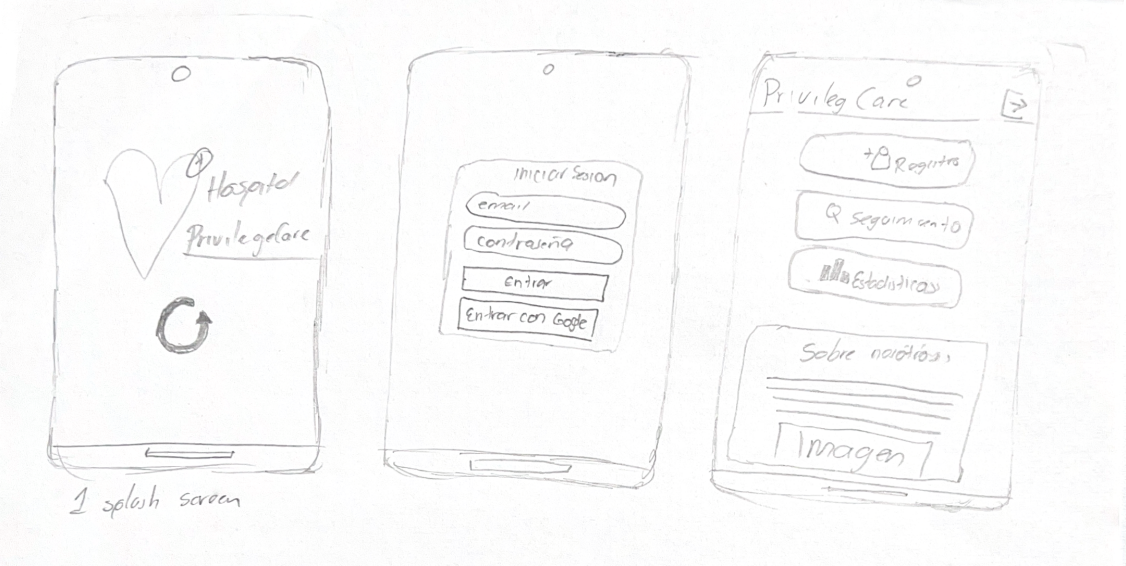 Hospital
PrivilegeCare
1 splash screen
iniciar sesion
email
contraseña
Entrar
Entrar con Google
Privileg Care
Registro
seguimiento
Estadisticas
Sobre nosotros
Imagen